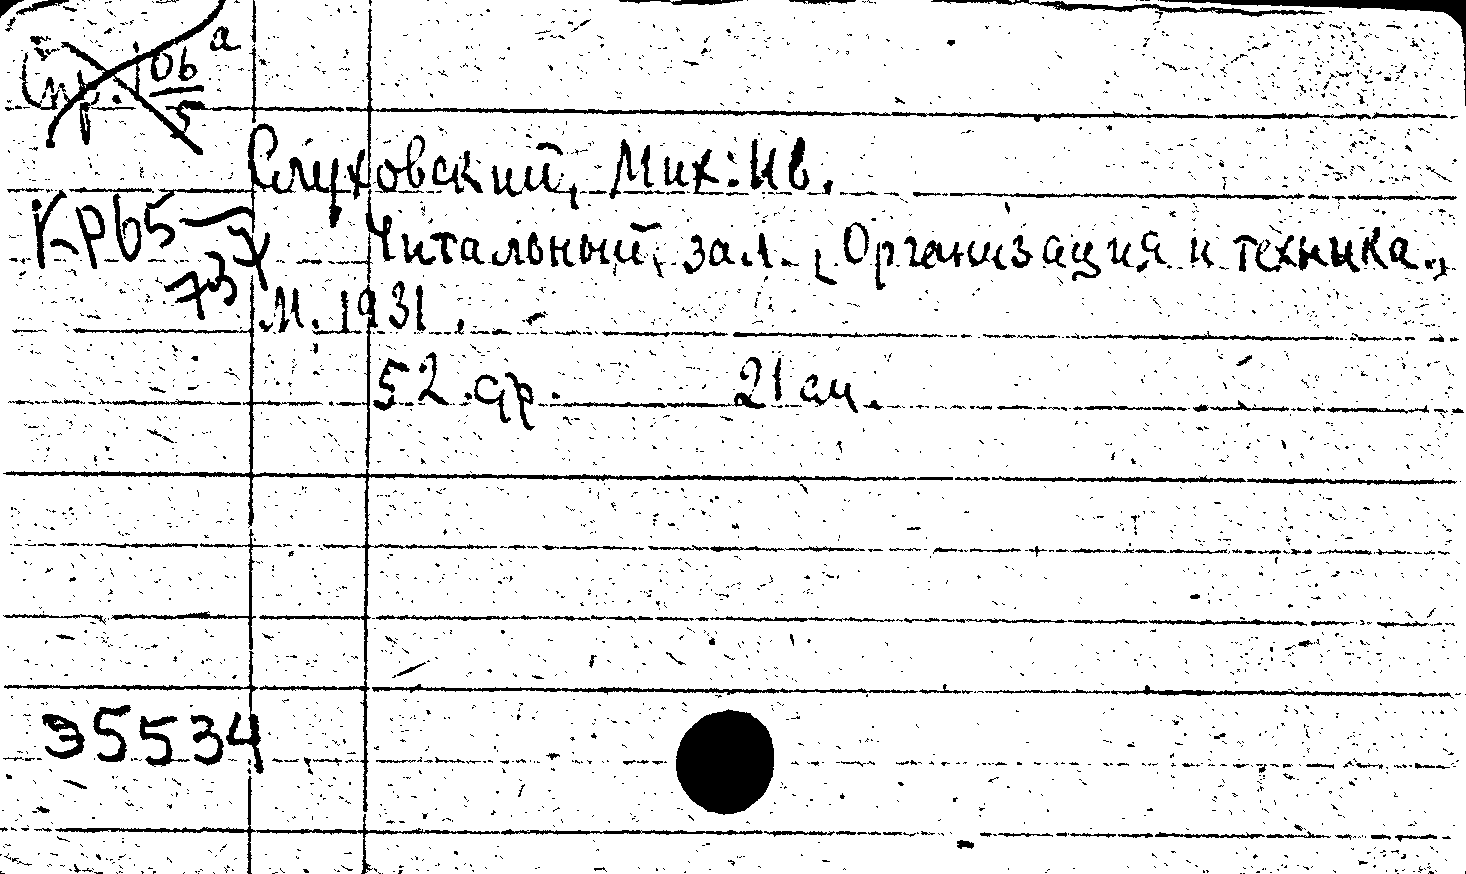 Спр. 06 а
5
Слуховский, Мих. Ив.
КРб5-У
73
Читальный зал. Организация и техника.,
М. 1931.
52 стр. 21 см.
Э5534